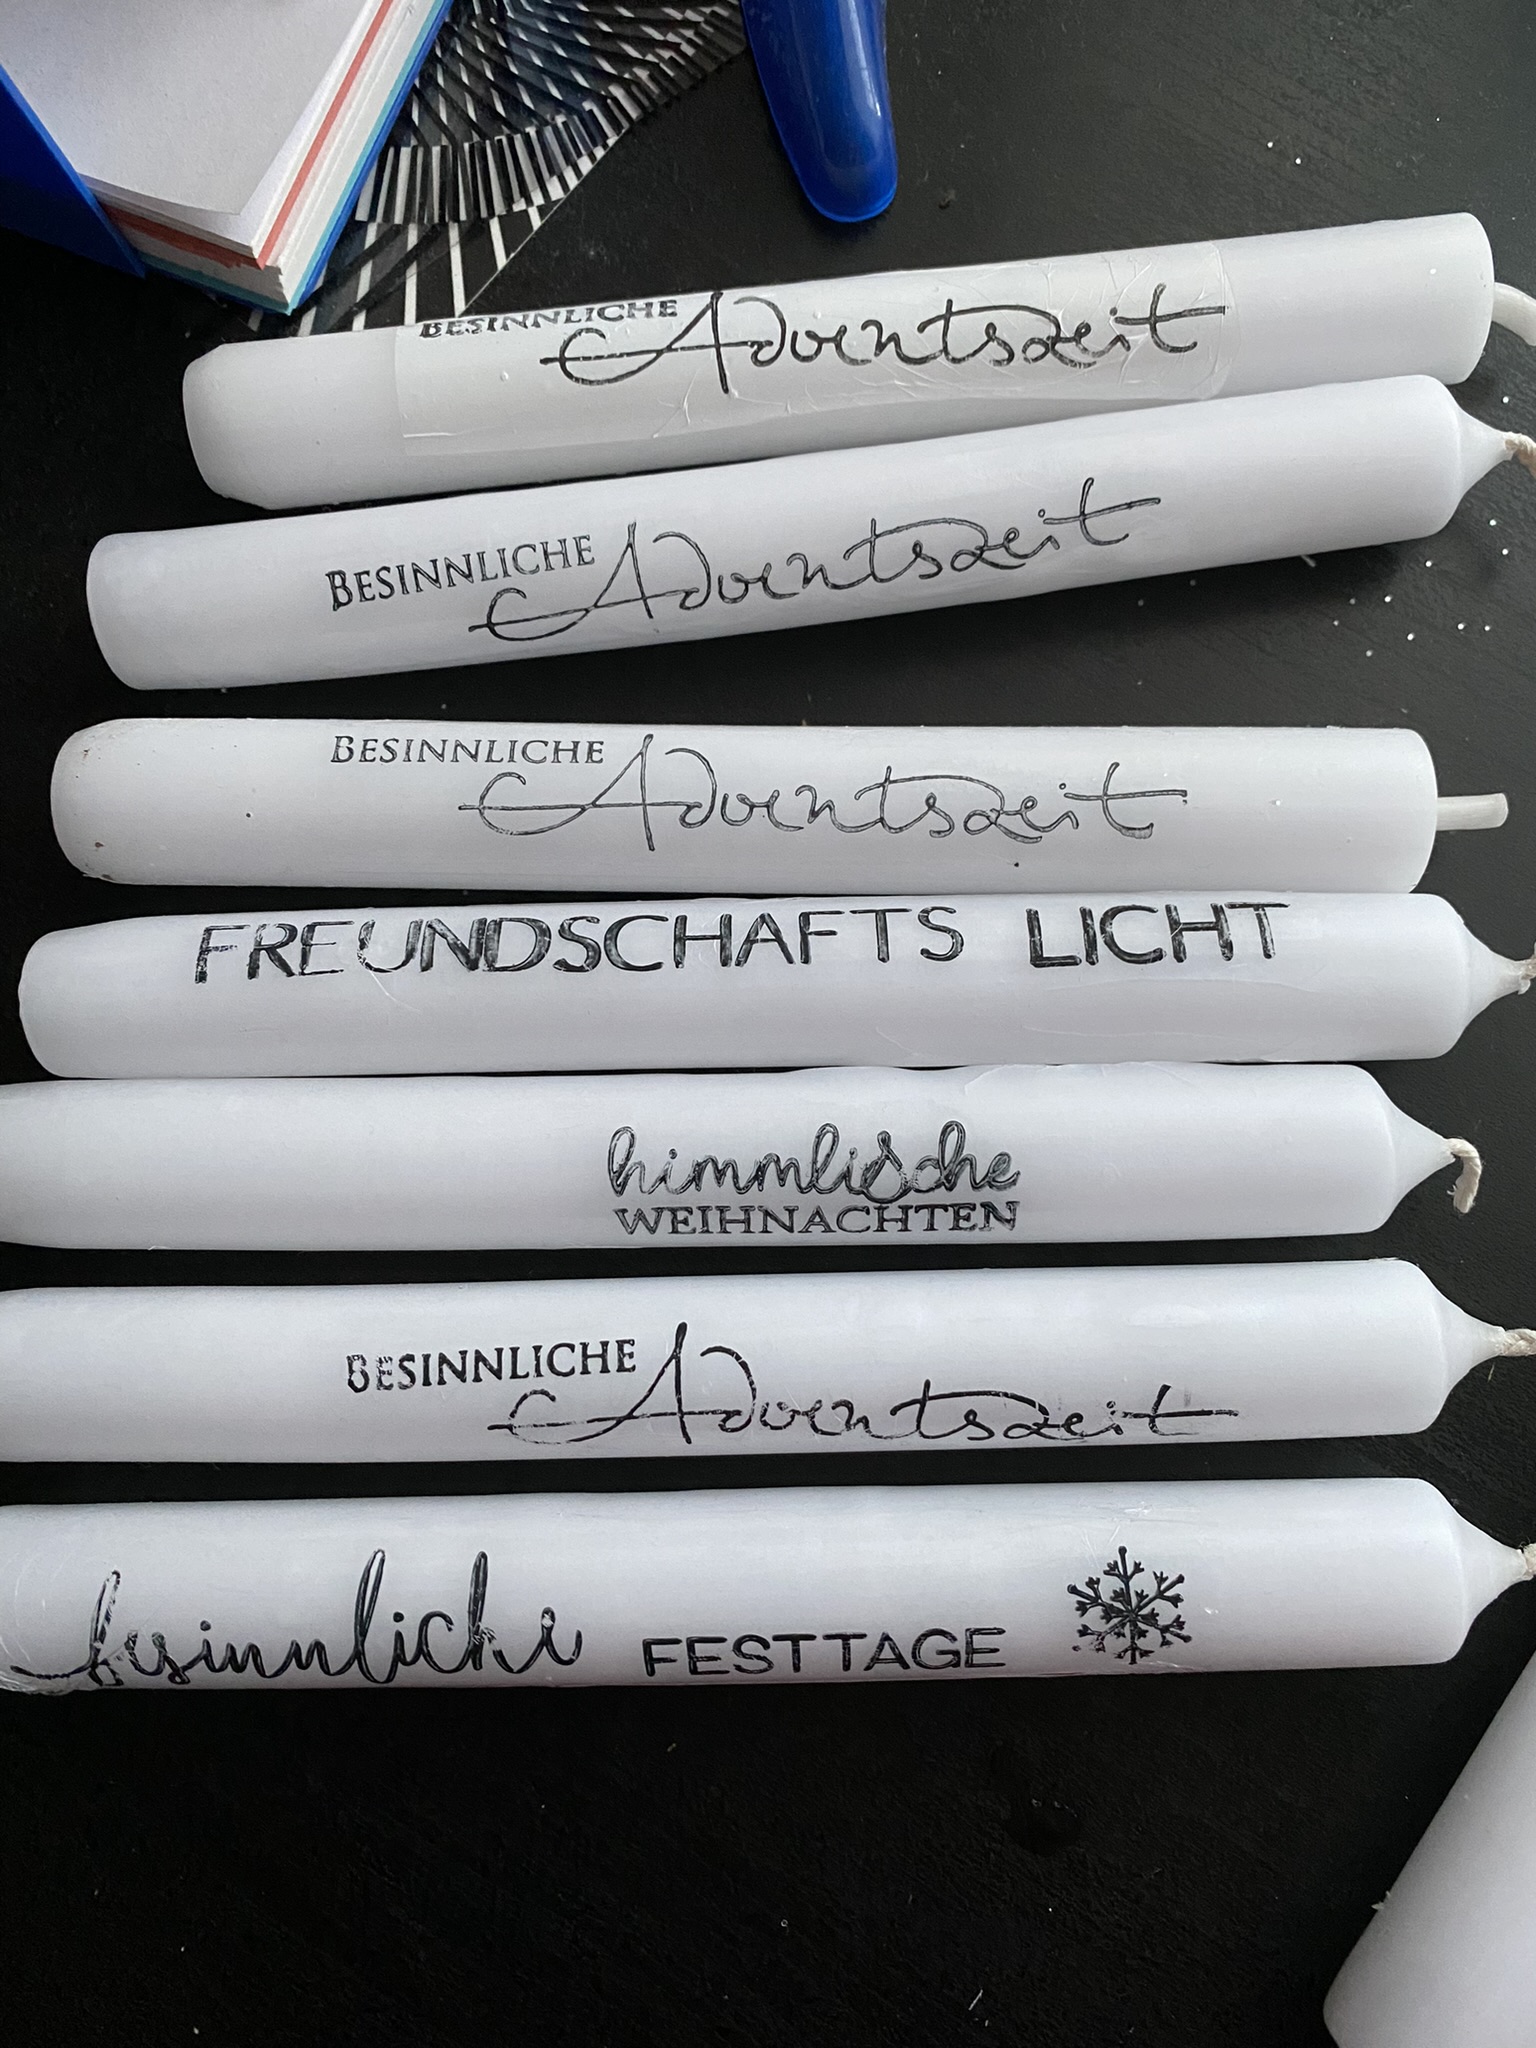 BESINNLICHE Adventszeit
BESINNLICHE Adventszeit
BESINNLICHE Adventszeit
FREUNDSCHAFTS LICHT
himmlische
WEIHNACHTEN
BESINNLICHE Adventszeit
besinnliche FESTTAGE